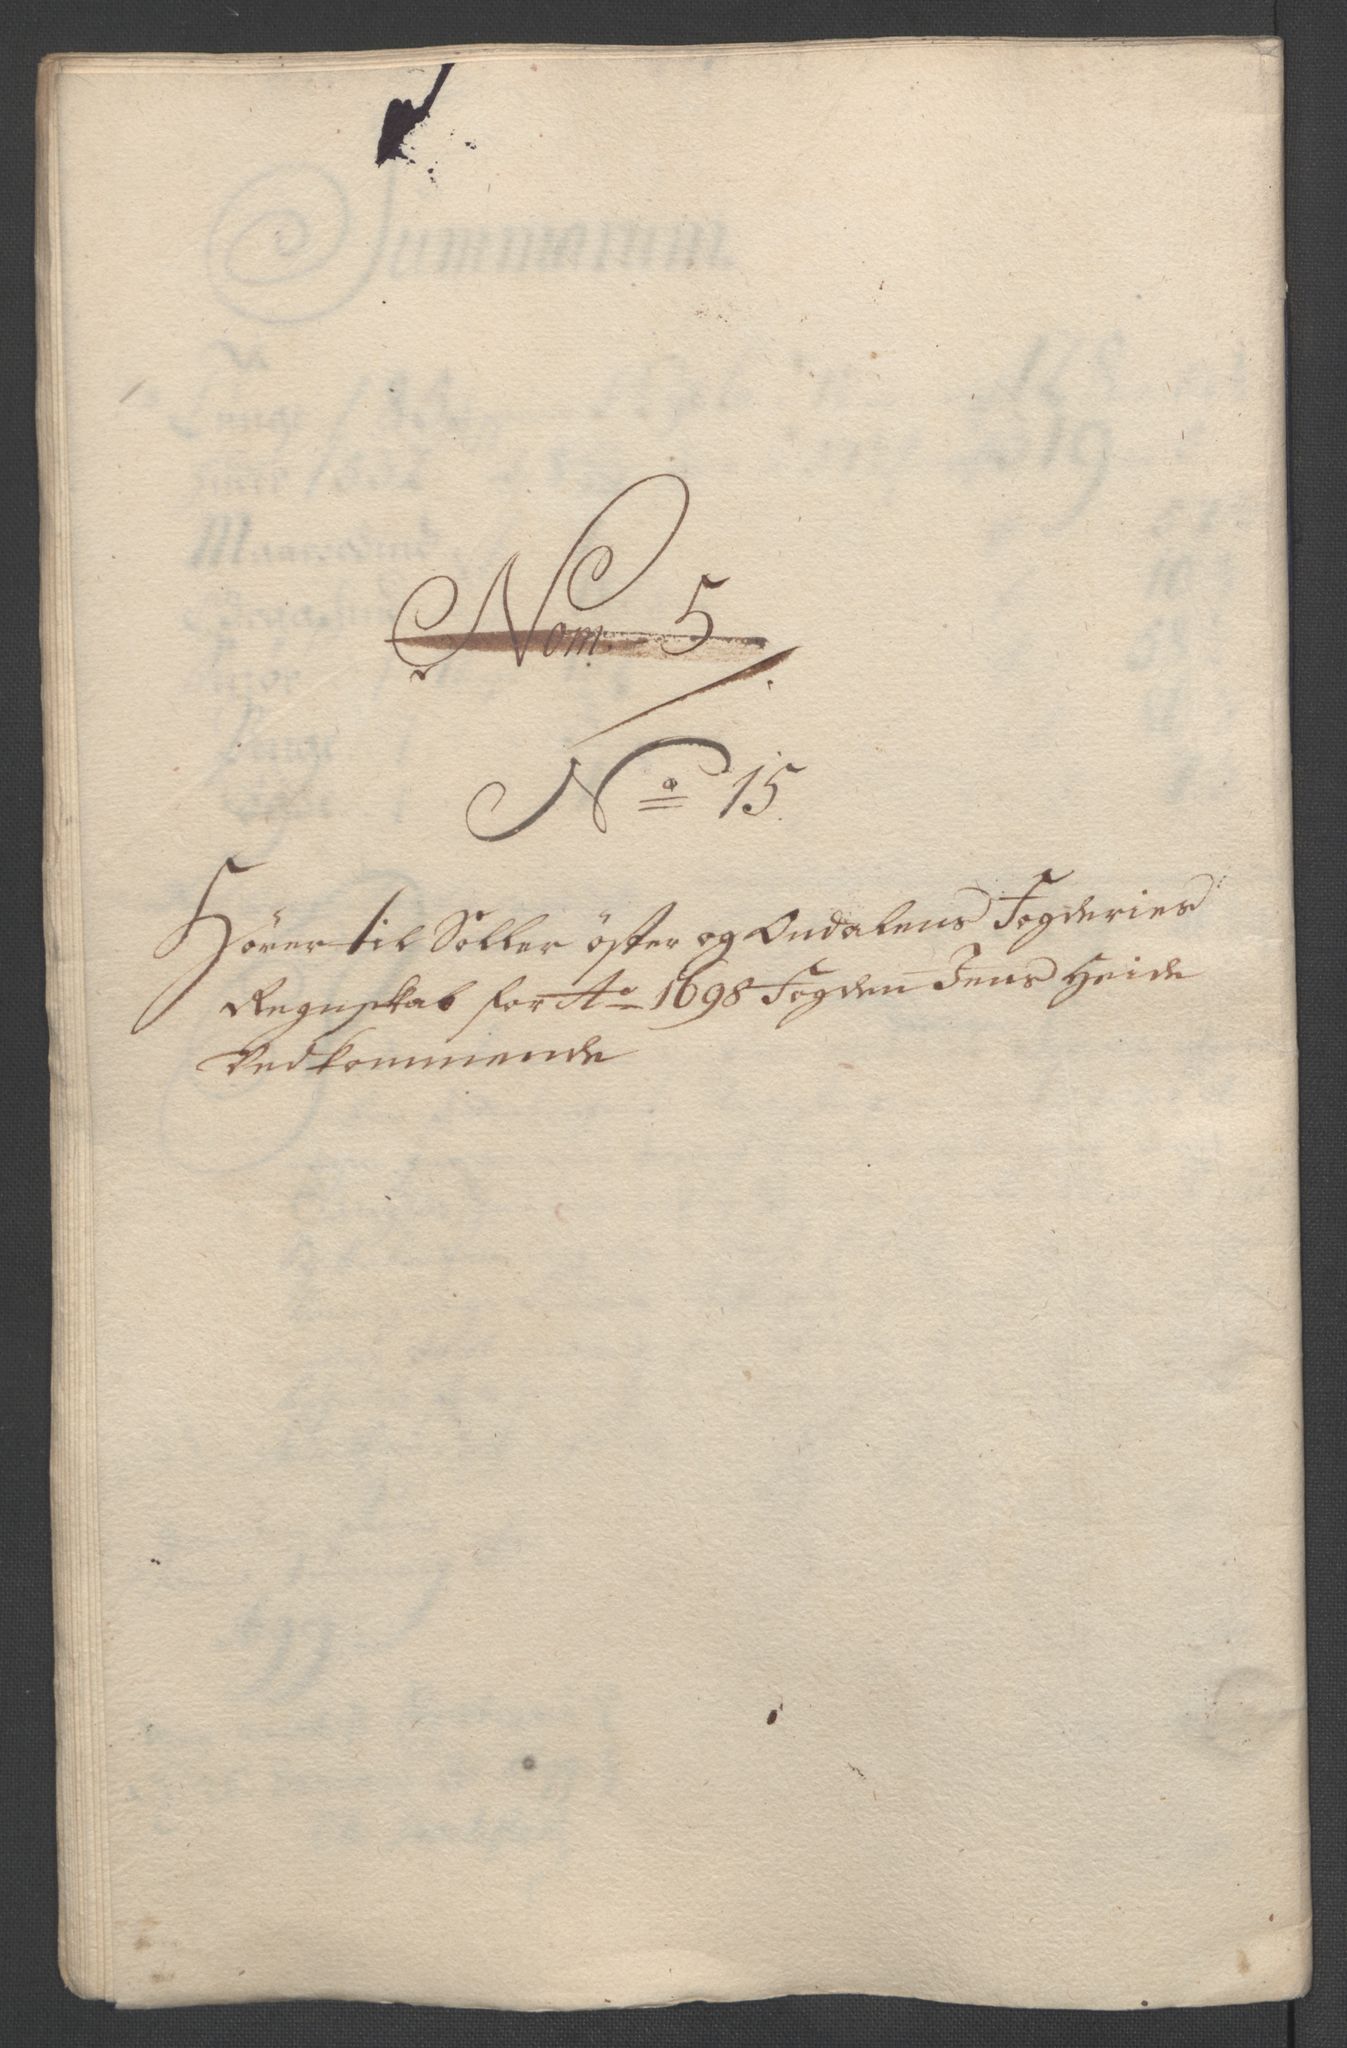 Nom. 5
No 15
Hörer til Soller öster og Oudalens Fogderies
Regnskab for Ao 1698 Fogden Jens Heide
Vedkommende